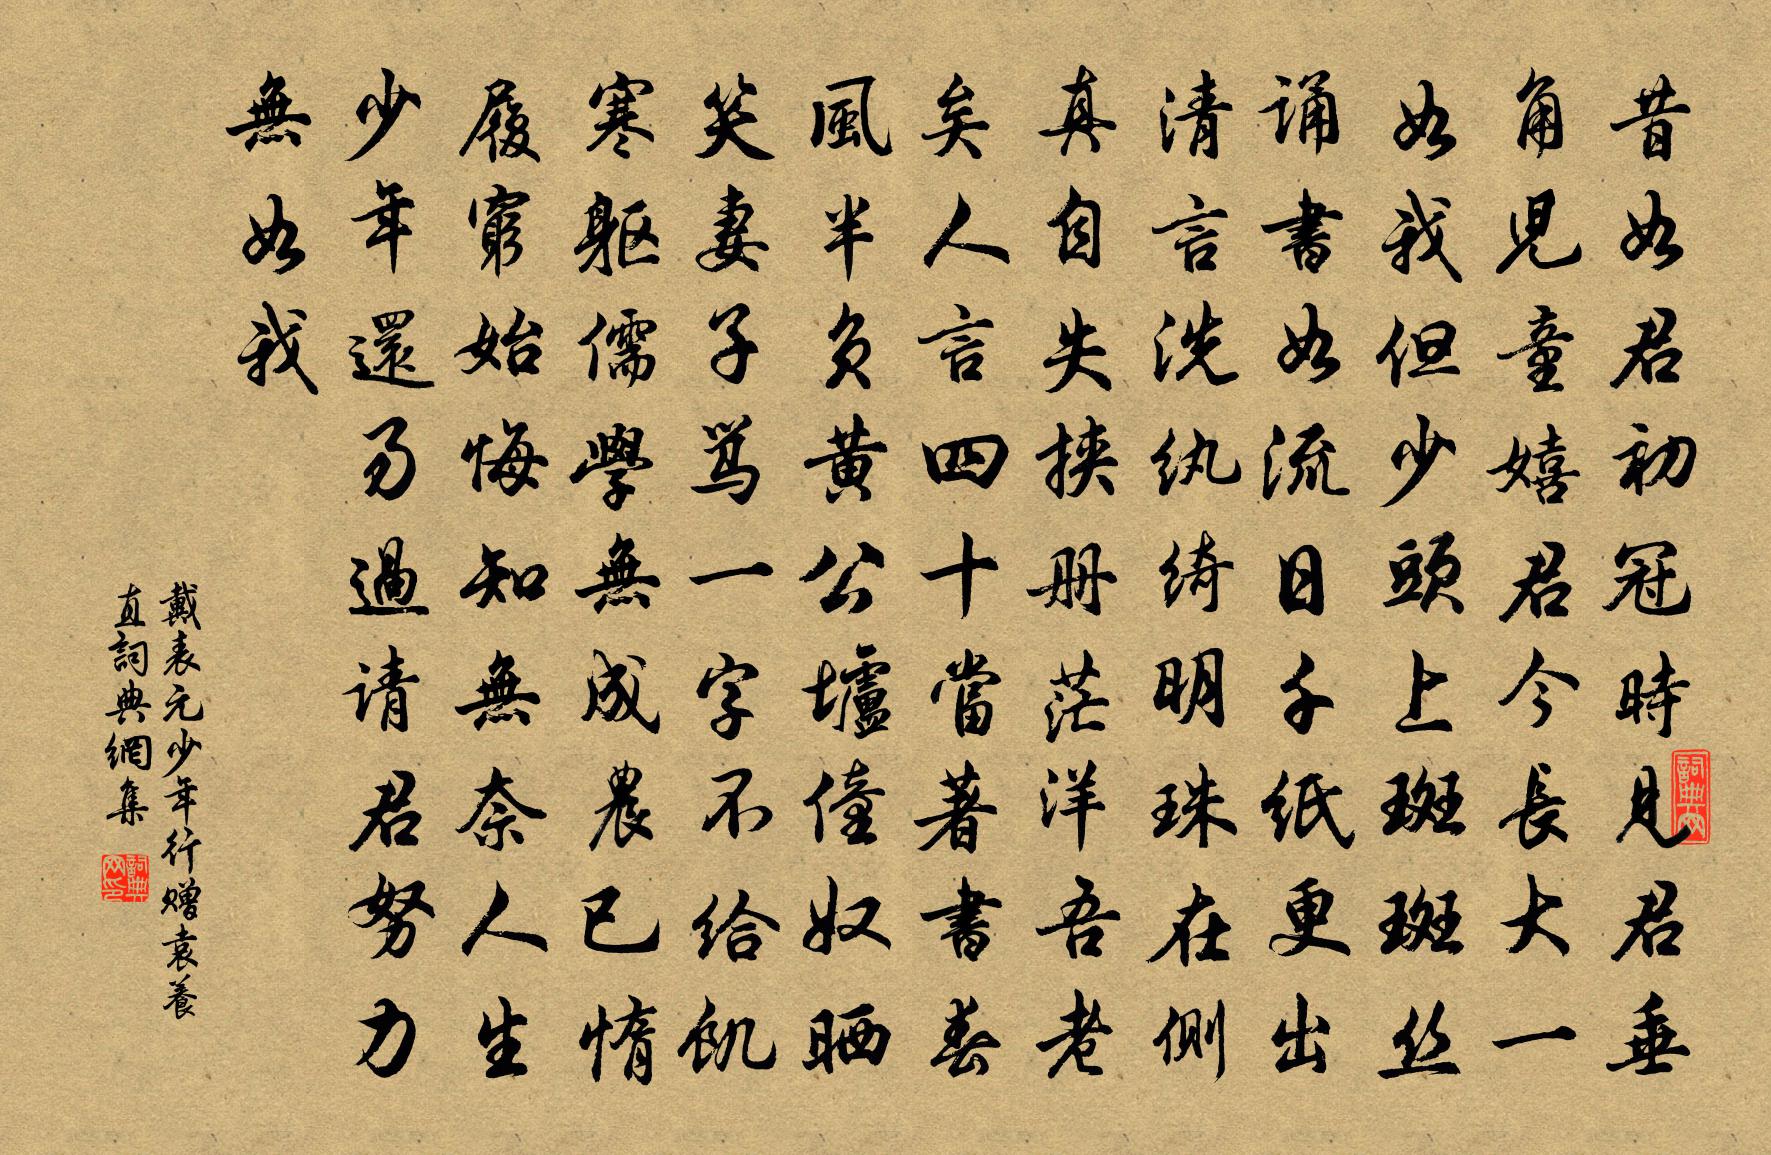 昔如君初冠時見君垂
角兒童嬉君今長大一
如我但少頭上斑斑丝
诵書如流日千纸更出
清言洗纨绮明珠在側
真自失挟册茫洋吾老
矣人言四十當著書春
風半负黄公壚僮奴晒
笑妻子骂一字不给飢
寒躯儒學無成農已惰
履穷始悔知無奈人生
少年還易過请君努力
無如我
戴表元少年行赠袁養
直詞典網集
詞典网
詞典网印